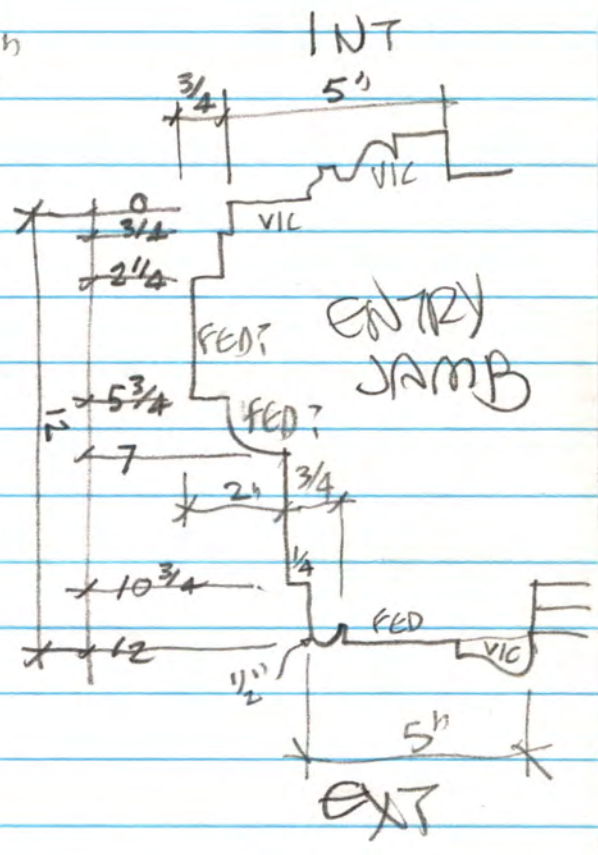 INT
3/4 5"
VIC
0
VIC
3/4
2 1/4
FED?
ENTRY
JAMB
5 3/4
FED?
12
7
2" 3/4
1/4
10 3/4
FED
VIC
12
1/2"
5"
EXT